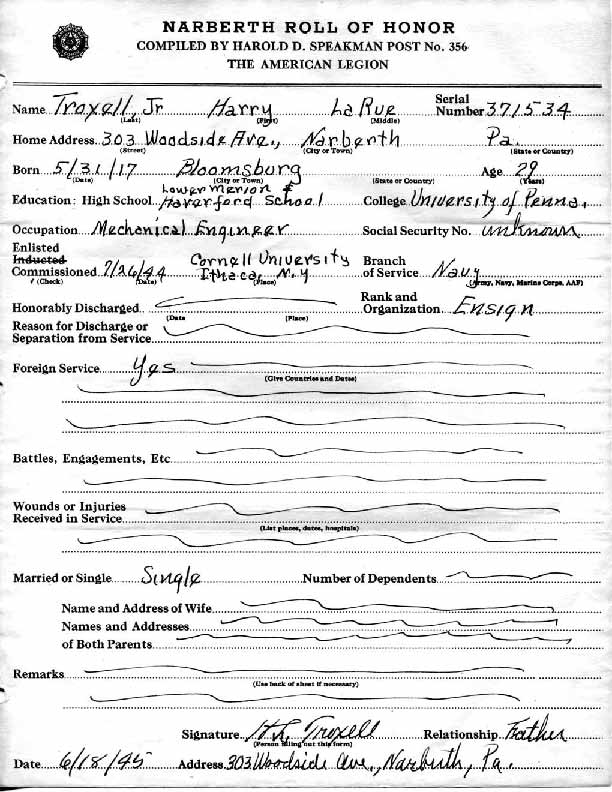 NARBERTH ROLL OF HONOR
COMPILED BY HAROLD D. SPEAKMAN POST No. 356
THE AMERICAN LEGION
Name Troxell, Jr Harry La Rue Serial Number 371534
(Last) (First) (Middle)
Home Address 303 Woodside Ave., Narberth Pa.
(Street) (City or Town) (State or Country)
Born 5/31/17 Bloomsburg Age 29
(Date) (City or Town) (State or Country) (Years)
Lower Merion &
Education: High School Haverford School College University of Penna.
Occupation Mechanical Engineer Social Security No. unknown
Enlisted
Inducted Cornell University Branch
Commissioned 7/26/44 Ithaca, N.Y of Service Navy
(Check) (Date) (Place) (Army, Navy, Marine Corps, AAF)
Rank and
Honorably Discharged Organization Ensign
(Date (Place)
Reason for Discharge or
Separation from Service
Foreign Service Yes
(Give Countries and Dates)
Battles, Engagements, Etc
Wounds or Injuries
Received in Service
(List places, dates, hospitals)
Married or Single Single Number of Dependents
Name and Address of Wife
Names and Addresses
of Both Parents
Remarks
(Use back of sheet if necessary)
Signature H L Troxell Relationship Father
(Person filling out this form)
Date 6/18/45 Address 303 Woodside Ave., Narberth, Pa.